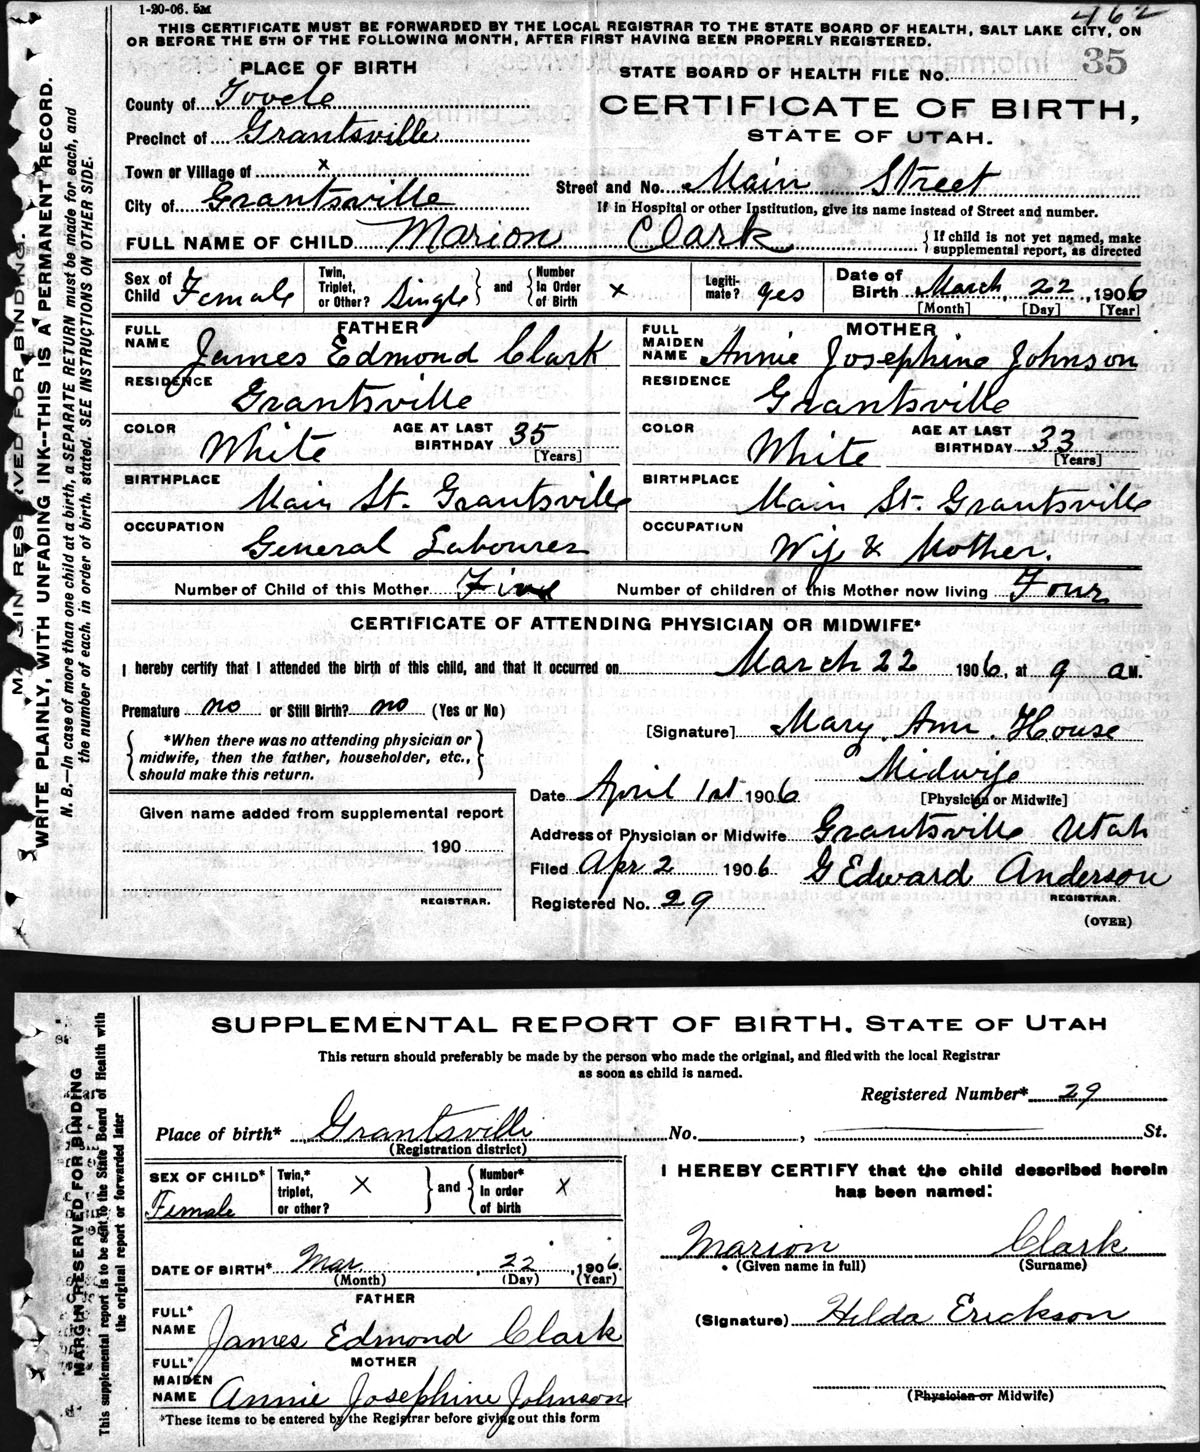 1-20-06. 5M
462
THIS CERTIFICATE MUST BE FORWARDED BY THE LOCAL REGISTRAR TO THE STATE BOARD OF HEALTH, SALT LAKE CITY, ON
OR BEFORE THE 5TH OF THE FOLLOWING MONTH, AFTER FIRST HAVING BEEN PROPERLY REGISTERED.
MARGIN RESERVED FOR BINDING.
WRITE PLAINLY, WITH UNFADING INK--THIS IS A PERMANENT RECORD.
N. B.—In case of more than one child at a birth, a SEPARATE RETURN must be made for each, and
the number of each, in order of birth, stated. SEE INSTRUCTIONS ON OTHER SIDE.
PLACE OF BIRTH
STATE BOARD OF HEALTH FILE No. 35
County of Tooele
CERTIFICATE OF BIRTH,
Precinct of Grantsville
STATE OF UTAH.
Town or Village of x
Street and No. Main Street
City of Grantsville
If in Hospital or other Institution, give its name instead of Street and number.
FULL NAME OF CHILD Marion Clark { If child is not yet named, make
supplemental report, as directed
Sex of Child Female Twin, Triplet, or Other? Single } and { Number In Order of Birth x Legiti-mate? yes Date of Birth March 22, 1906
[Month] [Day] [Year]
FATHER MOTHER
FULL NAME James Edmond Clark FULL MAIDEN NAME Annie Josephine Johnson
RESIDENCE Grantsville RESIDENCE Grantsville
COLOR White AGE AT LAST BIRTHDAY 35 [Years] COLOR White AGE AT LAST BIRTHDAY 33 [Years]
BIRTHPLACE Main St. Grantsville BIRTHPLACE Main St. Grantsville
OCCUPATION General Labourer OCCUPATION Wif & Mother.
Number of Child of this Mother Five Number of children of this Mother now living Four
CERTIFICATE OF ATTENDING PHYSICIAN OR MIDWIFE*
I hereby certify that I attended the birth of this child, and that it occurred on March 22 1906, at 9 a M.
Premature no or Still Birth? no (Yes or No)
[Signature] Mary Ann House
{ *When there was no attending physician or
midwife, then the father, householder, etc.,
should make this return. }
Midwife
Date April 1st 1906 [Physician or Midwife]
Given name added from supplemental report
Address of Physician or Midwife Grantsville Utah
190
Filed Apr 2 1906. G Edward Anderson
REGISTRAR. REGISTRAR.
Registered No. 29
(OVER)
MARGIN RESERVED FOR BINDING
This supplemental report is to be sent to the State Board of Health with
the original report or forwarded later
SUPPLEMENTAL REPORT OF BIRTH, STATE OF UTAH
This return should preferably be made by the person who made the original, and filed with the local Registrar
as soon as child is named.
Registered Number* 29
Place of birth* Grantsville No. , St.
(Registration district)
SEX OF CHILD* Female Twin,* triplet, or other? X } and { Number* In order of birth X
I HEREBY CERTIFY that the child described herein
has been named:
DATE OF BIRTH* Mar 22, 1906.
(Month) (Day) (Year)
Marion Clark
(Given name in full) (Surname)
FATHER
FULL* NAME James Edmond Clark
(Signature) Hilda Erickson
MOTHER
FULL* MAIDEN NAME Annie Josephine Johnson
(Physician or Midwife)
*These items to be entered by the Registrar before giving out this form